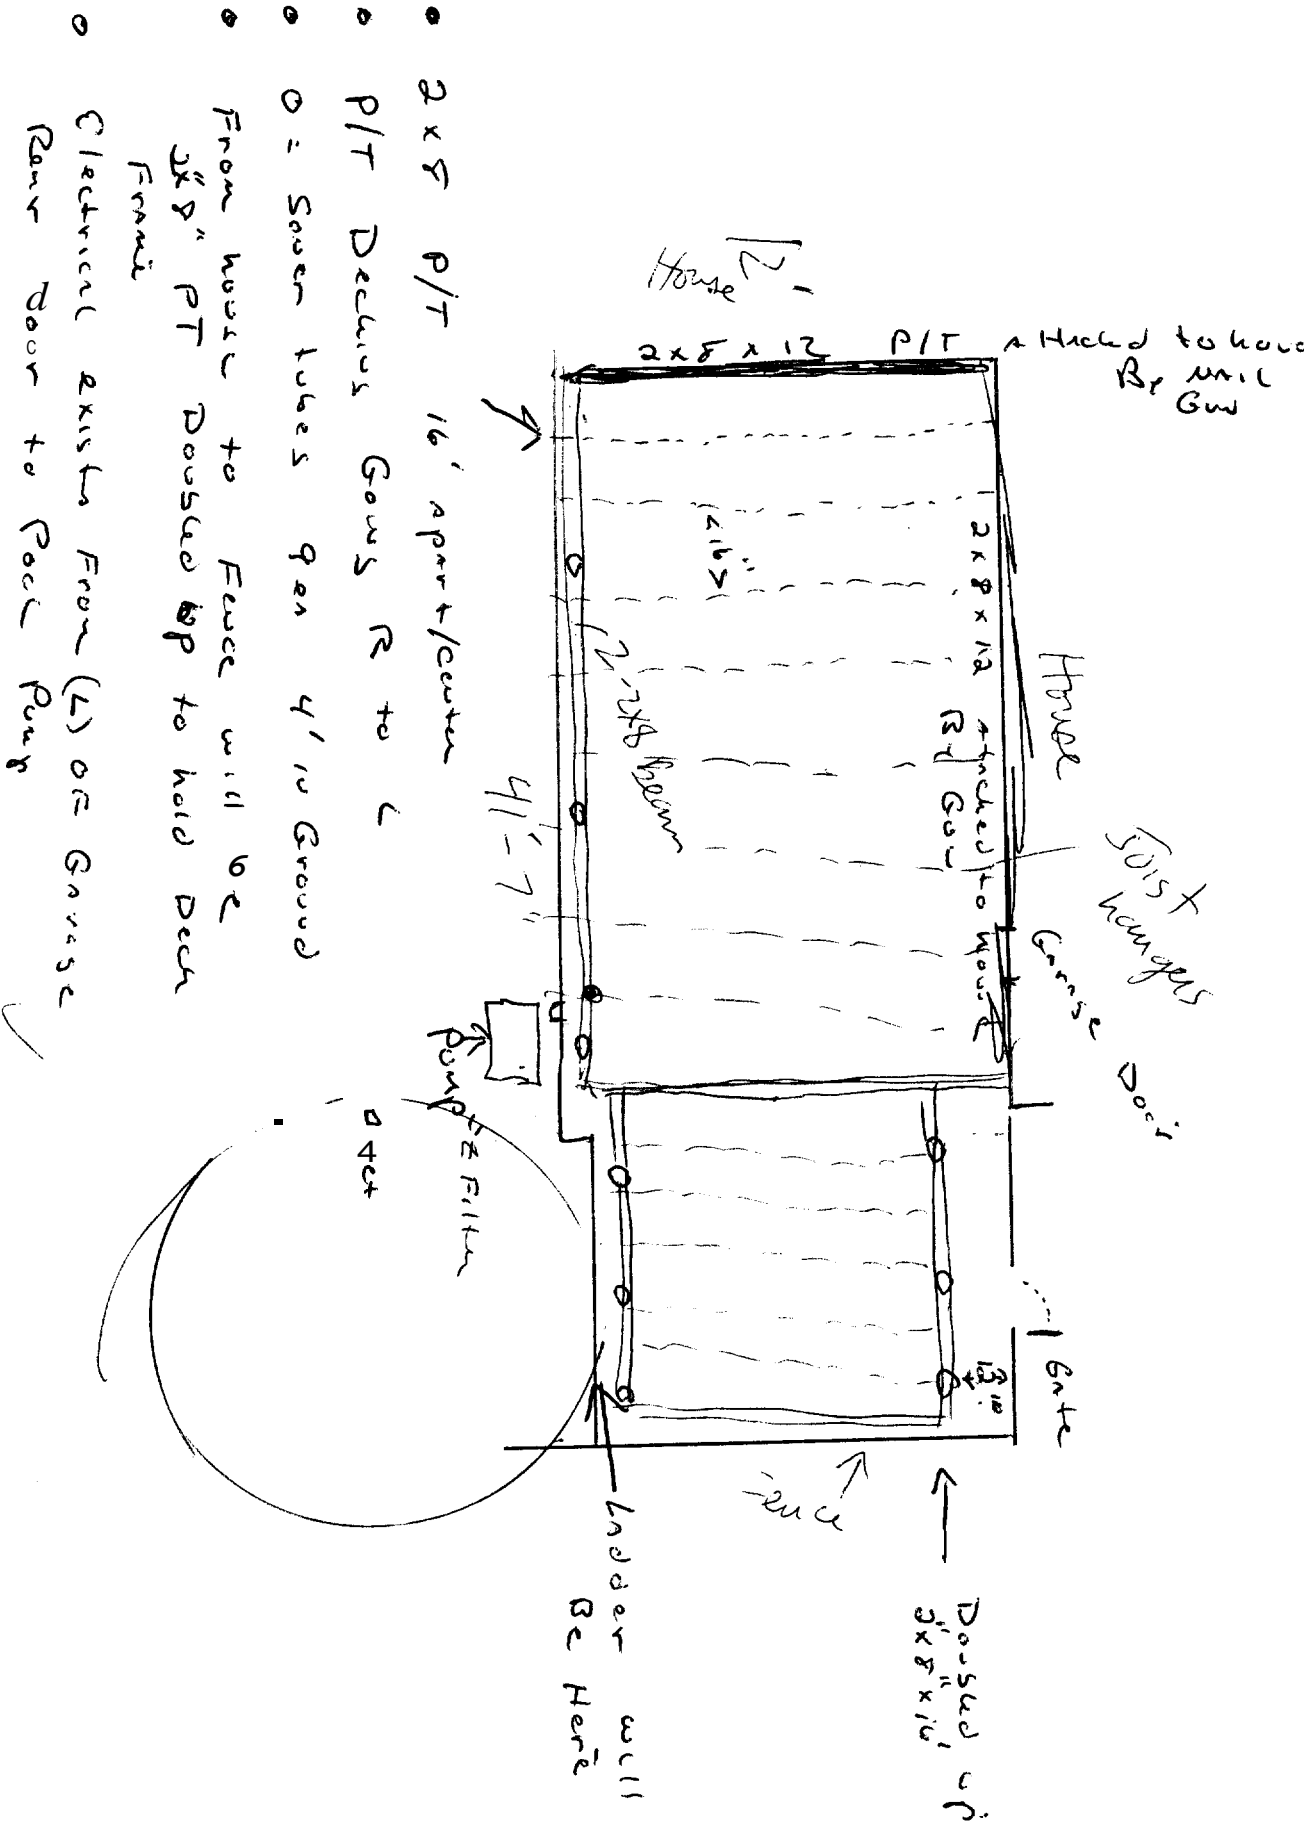 House
12'-
2x8 x 12 P/T Attached to house
By nail
Gun
2x8x12 Attached to House
By Gun
House
Joist
hangers
Garage Door
<16">
2-2x8 beam
41'-7"
Pump & Filter
4ct
Gate
Fence
Doubled up
2"x8"x16'
Ladder will
Be Here
• 2x8 P/T 16' apart/center
• P/T Decking Going R to L
• O = Sower tubes per 4' in Ground
• From house to Fence will be
2"x8" PT Doubled up to hold Deck
Frame
• Electrical exists From (L) OF Garage
Rear door to Pool Pump